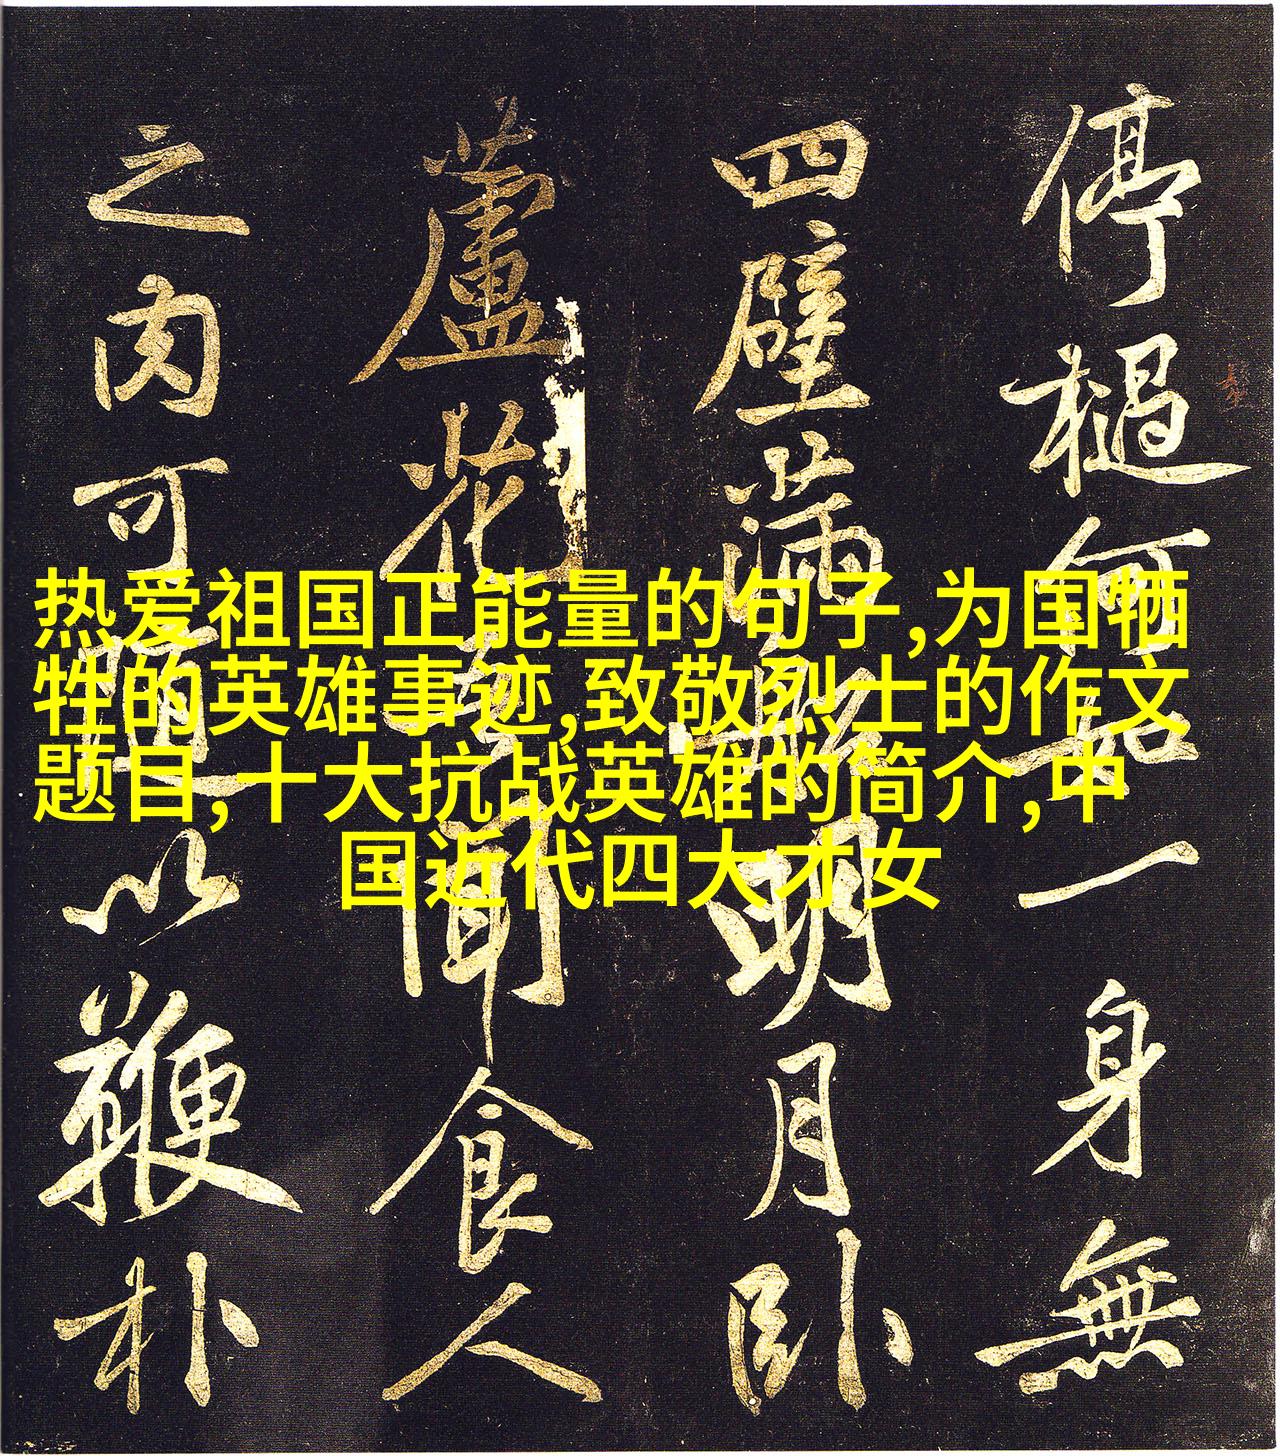 热爱祖国正能量的句子,为国牺
牲的英雄事迹,致敬烈士的作文
题目,十大抗战英雄的简介,中
国近代四大才女
停檛何如一身無
四壁滿船明月卧
蘆花吾聞食人
之肉可隨以鞭朴